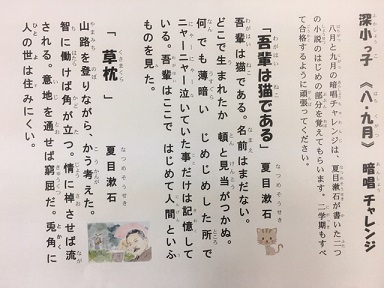 深小っ子 《八・九月》 暗唱 チャレンジ
八月と九月の暗唱チャレンジは、夏目漱石が書いた二つ
の小説のはじめの部分を覚えてもらいます。二学期もすべ
て合格するように頑張ってください。
「吾輩は猫である」 夏目漱石
吾輩は猫である。名前はまだない。
どこで生まれたか 頓と見当がつかぬ。
何でも薄暗い じめじめした所で
ニャーニャー泣いていた事だけは記憶して
いる。吾輩はここで はじめて人間といふ
ものを見た。
「草枕」 夏目漱石
山路を登りながら、かう考えた。
智に働けば角が立つ。情に棹させば流
される。意地を通せば窮屈だ。兎角に
人の世は住みにくい。